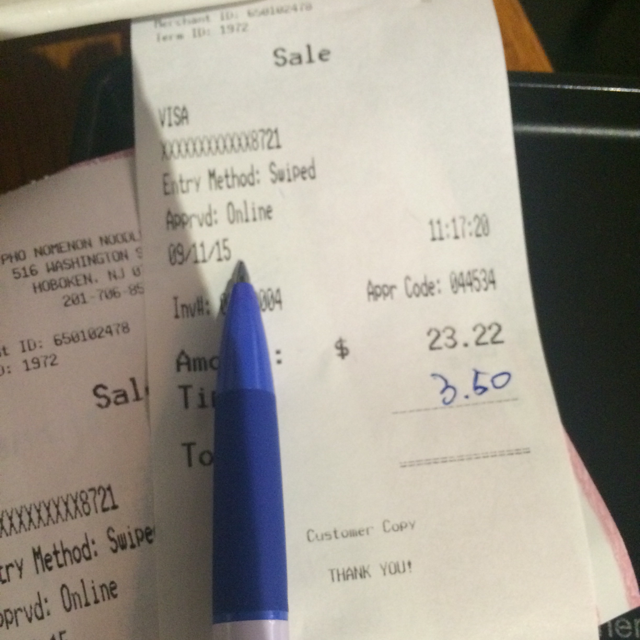 Merchant ID: 650102478
Term ID: 1972
Sale
VISA
XXXXXXXXXXXX8721
Entry Method: Swiped
Apprvd: Online
09/11/15
11:17:20
Inv#:
004
Appr Code: 044534
$ 23.22
3.50
Customer Copy
THANK YOU!
PHO NOMENON NOODL
516 WASHINGTON S
HOBOKEN, NJ 0
201-706-85
t ID: 650102478
: 1972
Sal
XXXXXXXXX8721
try Method: Swipe
pprvd: Online